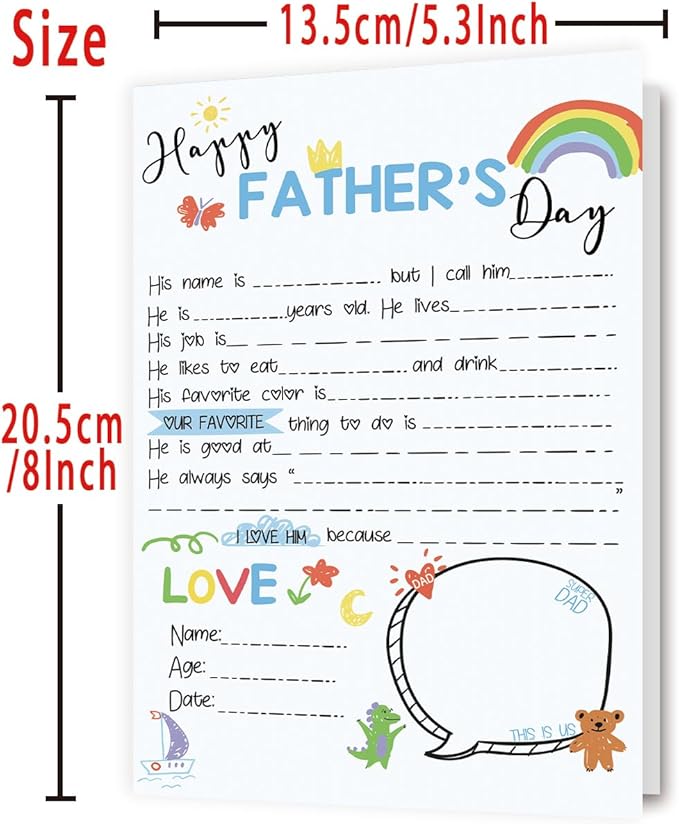 Size
13.5cm/5.3Inch
20.5cm
/8Inch
Happy
FATHER'S
Day
His name is ____________ but I call him____________
He is ____________years old. He lives____________
His job is____________
He likes to eat____________ and drink____________
His favorite color is____________
OUR FAVORITE thing to do is ____________
He is good at____________
He always says “____________
____________”
I LOVE HIM because ____________
LOVE
DAD
SUPER
DAD
Name:____________
Age:____________
Date:____________
THIS IS US